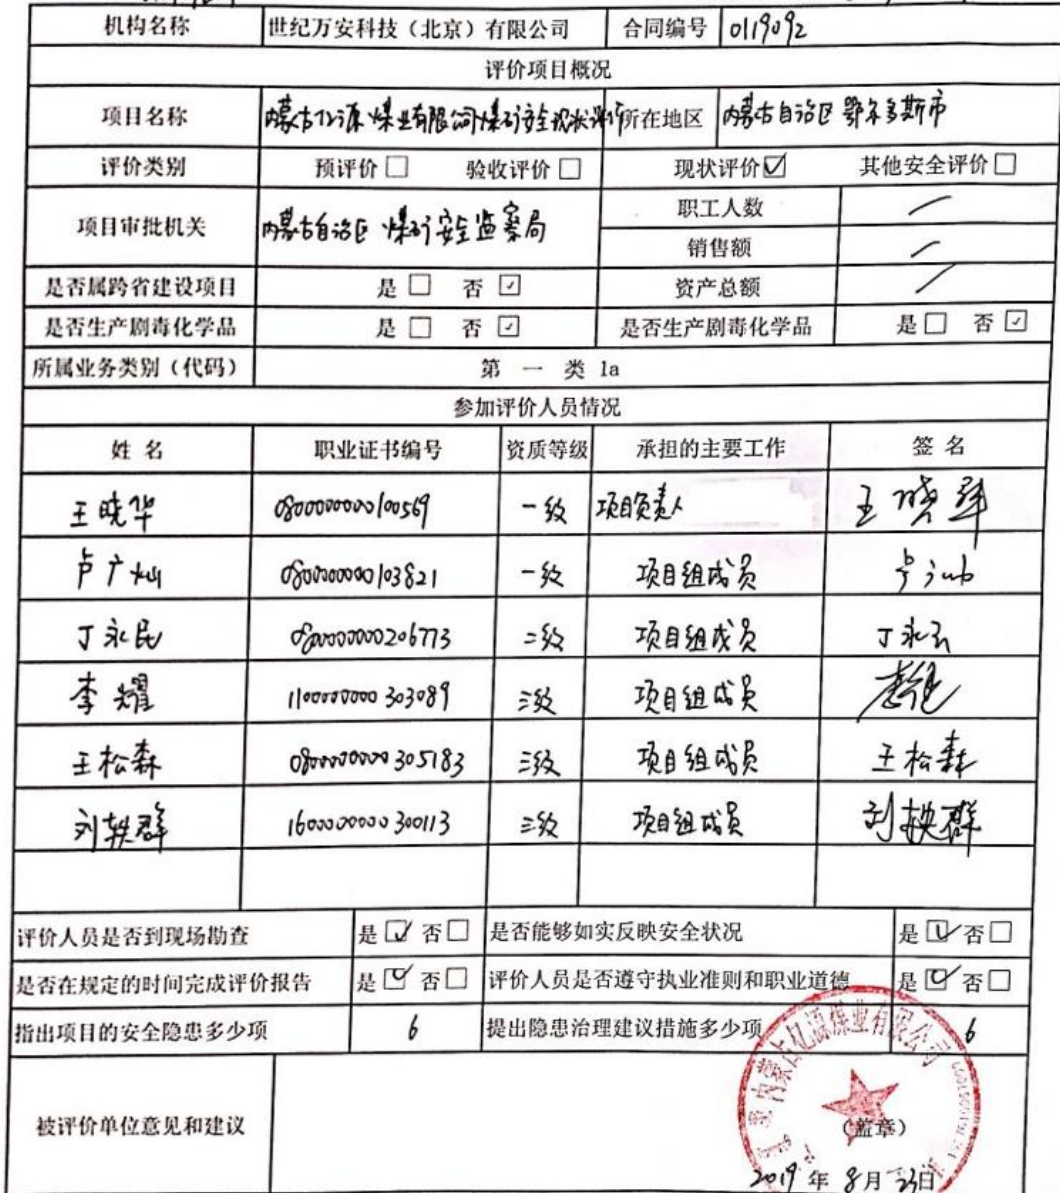 机构名称 世纪万安科技（北京）有限公司 合同编号 0119092
评价项目概况
项目名称 内蒙古亿源煤业有限公司煤矿安全现状评价 所在地区 内蒙古自治区鄂尔多斯市
评价类别 预评价□ 验收评价□ 现状评价☑ 其他安全评价□
项目审批机关 内蒙古自治区煤矿安全监察局 职工人数 /
销售额 /
是否属跨省建设项目 是□ 否☑ 资产总额 /
是否生产剧毒化学品 是□ 否☑ 是否生产剧毒化学品 是□ 否☑
所属业务类别（代码） 第一类 1a
参加评价人员情况
姓名 职业证书编号 资质等级 承担的主要工作 签名
王晓华 0800000000100569 一级 项目负责人 王晓华
卢广灿 0800000000103821 一级 项目组成员
丁永民 0800000000206773 二级 项目组成员 丁永民
李耀 1100000000303089 三级 项目组成员 李耀
王松森 0800000000305183 三级 项目组成员 王松森
刘轶群 1600000000300113 三级 项目组成员 刘轶群
评价人员是否到现场勘查 是☑ 否□ 是否能够如实反映安全状况 是☑ 否□
是否在规定的时间完成评价报告 是☑ 否□ 评价人员是否遵守执业准则和职业道德 是☑ 否□
指出项目的安全隐患多少项 6 提出隐患治理建议措施多少项 6
内蒙古亿源煤业有限公司
被评价单位意见和建议
（盖章）
2019年8月23日